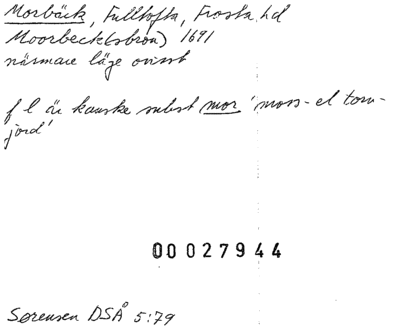 Morbäck, Fulltofta, Frosta hd
Moorbeck(sbron) 1691
närmare läge ovisst
f l är kanske subst mor 'moss- el torv-
jord'
00027944
Sørensen DSÅ 5:79